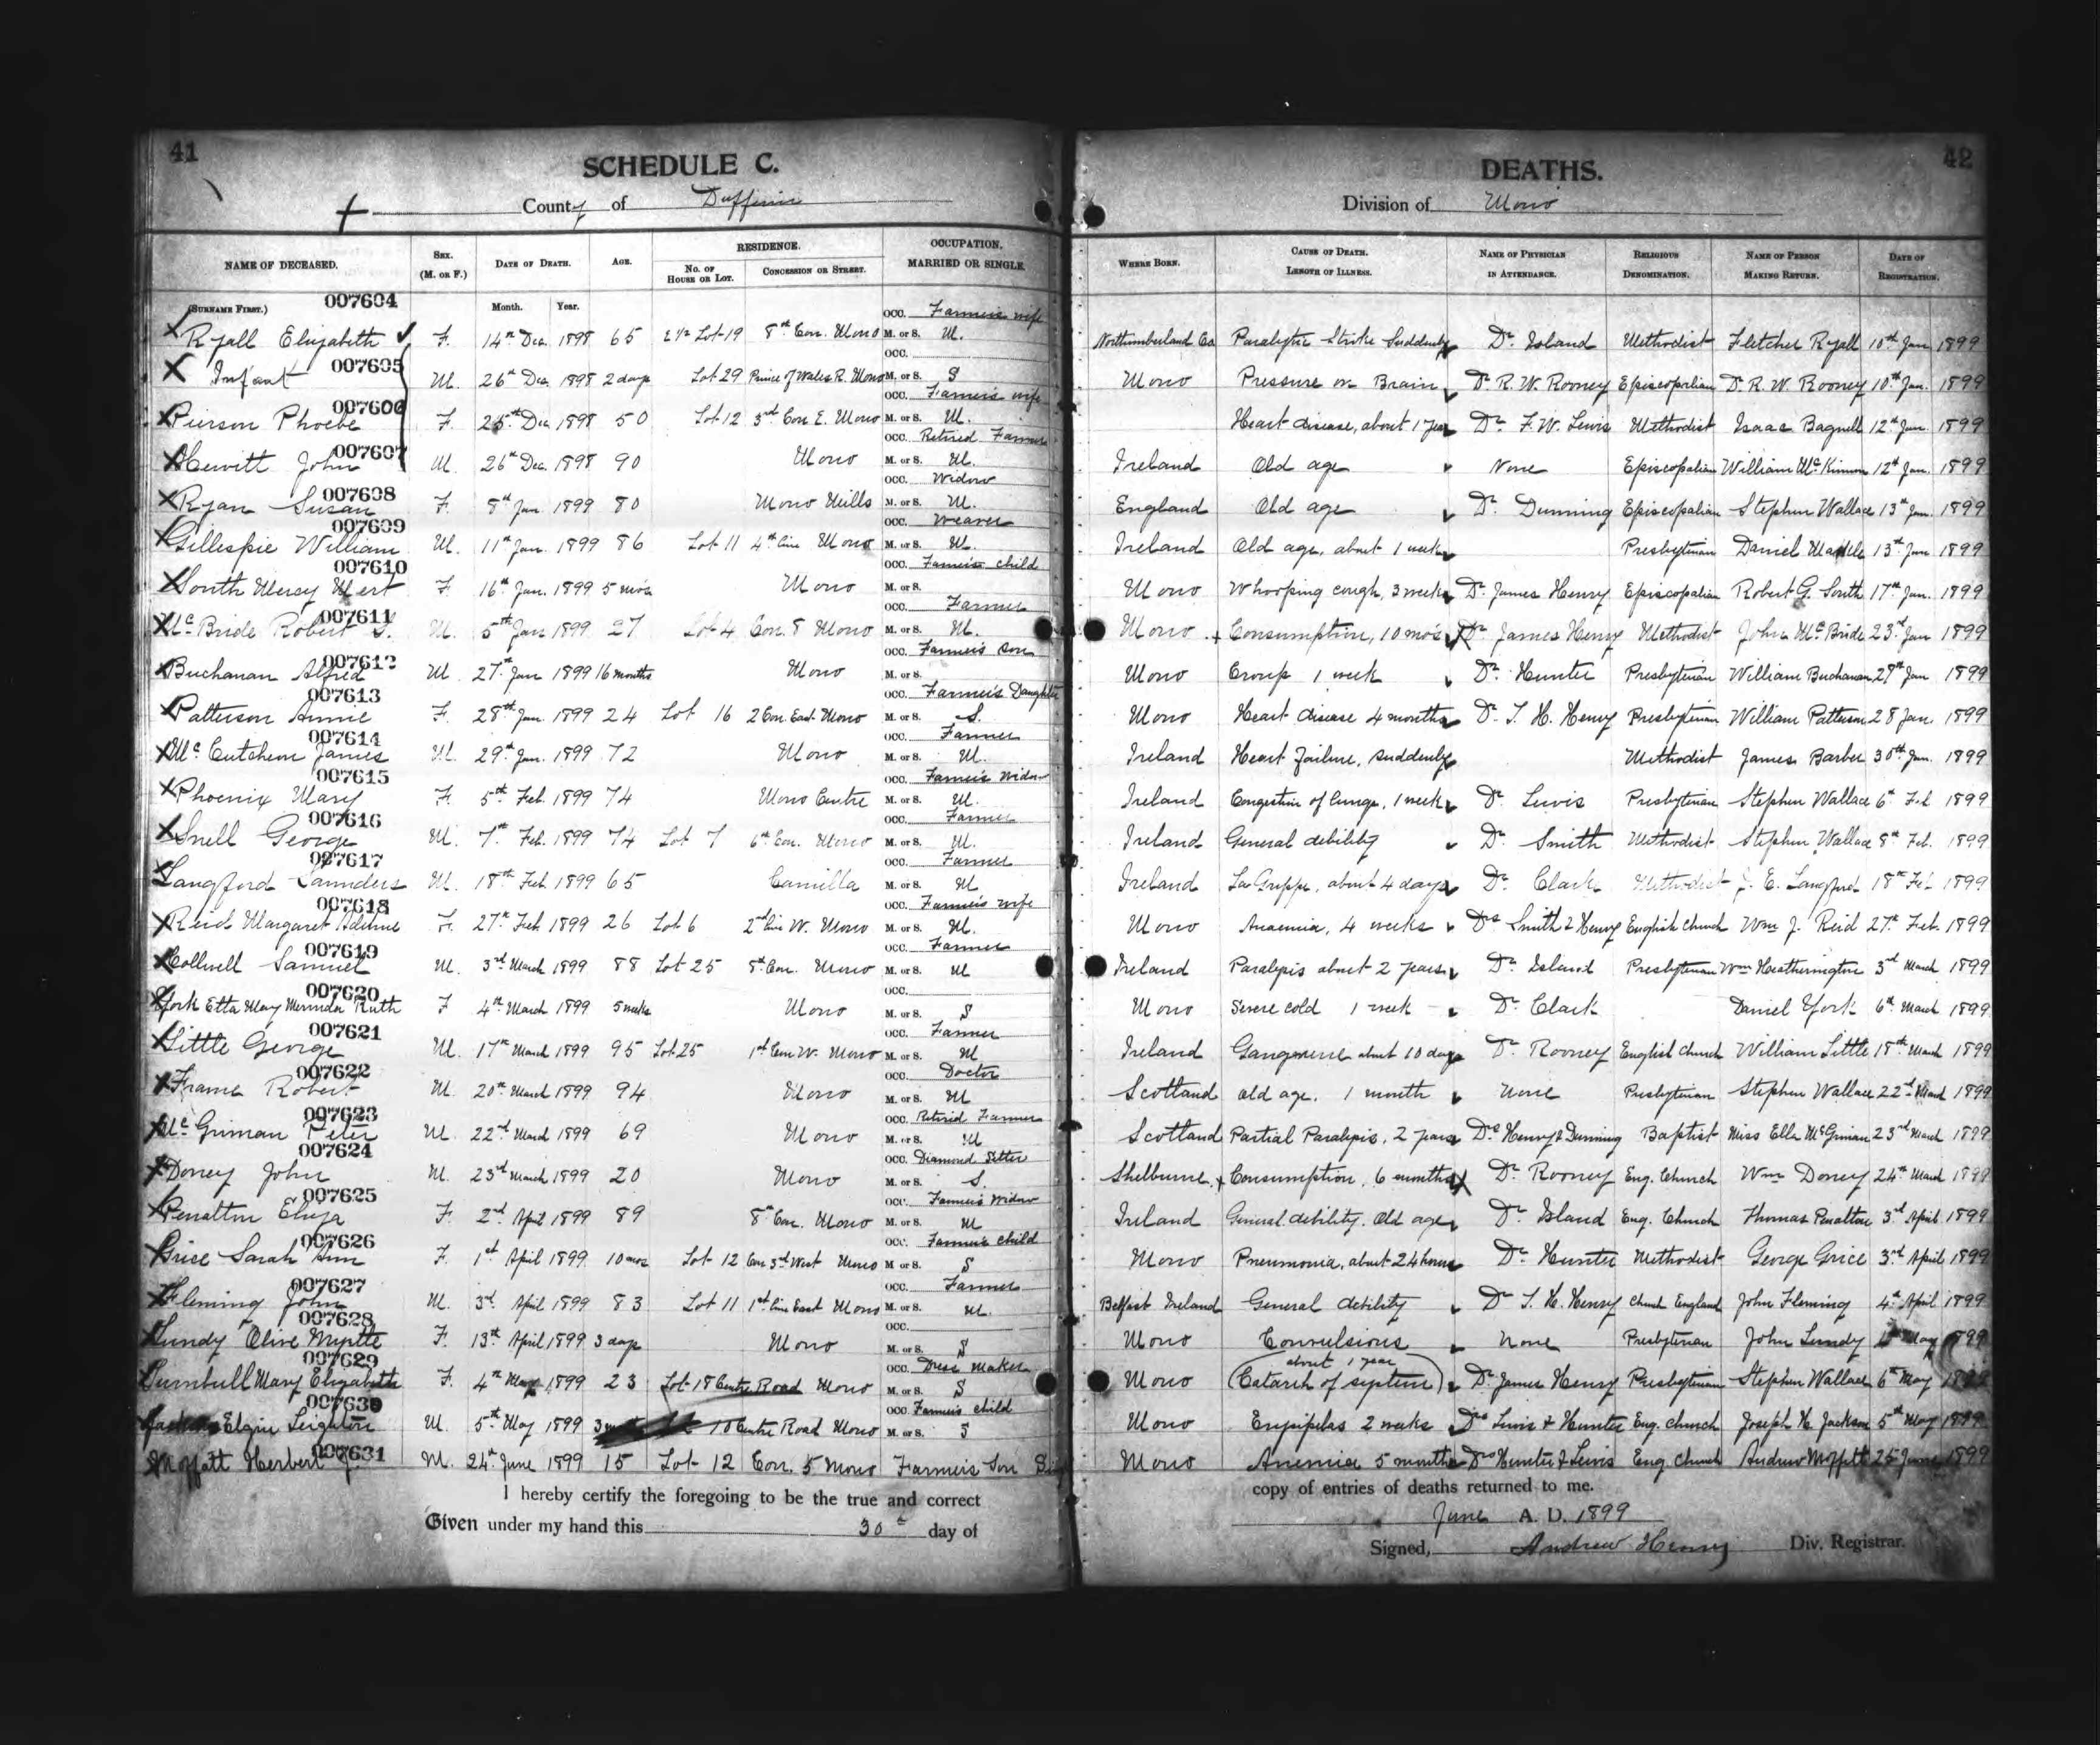 41
SCHEDULE C.
County of Dufferin
NAME OF DECEASED. SEX. (M. OR F.) DATE OF DEATH. AGE. RESIDENCE. OCCUPATION.
No. OF HOUSE OR LOT. CONCESSION OR STREET. MARRIED OR SINGLE.
(SURNAME FIRST.) 007604 Month. Year. OCC. Farmer's wife
Ryall Elizabeth F. 14th Dec. 1898 65 E ½ Lot 19 8th Con. Mono M. or S. M.
007605 OCC.
Infant M. 26th Dec. 1898 2 days Lot 29 Prince of Wales R. Mono M. or S. S
007606 OCC. Farmer's wife
Pierson Phoebe F. 25th Dec. 1898 50 Lot 12 3rd Con E. Mono M. or S. M.
007607 OCC. Retired Farmer
Hewitt John M. 26th Dec. 1898 90 Mono M. or S. M.
007608 OCC. Widow
Ryan Susan F. 8th Jan. 1899 80 Mono Mills M. or S. M.
007609 OCC. Weaver
Gillespie William M. 11th Jan. 1899 86 Lot 11 4th line Mono M. or S. M.
007610 OCC. Farmer's child
South Mercy F. 16th Jan. 1899 5 mos Mono M. or S.
007611 OCC. Farmer
McBride Robert J. M. 5th Jan 1899 27 Lot 4 Con. 8 Mono M. or S. M.
007612 OCC. Farmer's Son
Buchanan Alfred M 27th Jan 1899 16 months Mono M. or S.
007613 OCC. Farmer's Daughter
Patterson Annie F. 28th Jan. 1899 24 Lot 16 2 Con. East Mono M. or S. S.
007614 OCC. Farmer
McCutcheon James M. 29th Jan. 1899 72 Mono M. or S. M.
007615 OCC. Farmer's Widow
Phoenix Mary F. 5th Feb. 1899 74 Mono Centre M. or S. M.
007616 OCC. Farmer
Snell George M. 7th Feb. 1899 74 Lot 7 6th Con. Mono M. or S. M.
007617 OCC. Farmer
Langford Saunders M. 18th Feb 1899 65 Camilla M. or S. M
007618 OCC. Farmer's wife
Reid Margaret Adeline F. 27th Feb. 1899 26 Lot 6 2nd line W. Mono M. or S. M.
007619 OCC. Farmer
Collwell Samuel M. 3rd March 1899 88 Lot 25 8th Con. Mono M. or S. M
007620 OCC.
York Etta May Ruth F 4th March 1899 5 weeks Mono M. or S. S
007621 OCC. Farmer
Little George M. 17th March 1899 95 Lot 25 1st Con W. Mono M. or S. M
007622 OCC. Doctor
Frame Robert M. 20th March 1899 94 Mono M. or S. M
007623 OCC. Retired Farmer
Peter M. 22nd March 1899 69 Mono M. or S. M
007624 OCC. Diamond Setter
Doney John M. 23rd March 1899 20 Mono M. or S. S.
007625 OCC. Farmer's Widow
Penalton Eliza F. 2nd April 1899 89 8th Con. Mono M. or S. M
007626 OCC. Farmer's child
Grice Sarah Ann F. 1st April 1899 10 mos Lot 12 Con 3rd West Mono M or S. S
007627 OCC. Farmer
Fleming John M. 3rd April 1899 83 Lot 11 1st line East Mono M. or S. M.
007628 OCC.
Lundy Olive Myrtle F. 13th April 1899 3 days Mono M. or S. S
007629 OCC. Dress maker
Turnbull Mary Elizabeth F. 4th May 1899 23 Lot 18 Centre Road Mono M. or S. S
007630 OCC. Farmer's child
Jackson Elgin Leighton M. 5th May 1899 10 Centre Road Mono M. or S. S
007631
Moffatt Herbert J. M. 24th June 1899 15 Lot 12 Con. 5 Mono Farmer's Son
I hereby certify the foregoing to be the true and correct
Given under my hand this 30th day of
42
DEATHS.
Division of Mono
WHERE BORN. CAUSE OF DEATH. LENGTH OF ILLNESS. NAME OF PHYSICIAN IN ATTENDANCE. RELIGIOUS DENOMINATION. NAME OF PERSON MAKING RETURN. DATE OF REGISTRATION.
Northumberland Co Paralytic Stroke Suddenly Dr. Island Methodist Fletcher Ryall 10th Jan 1899
Mono Pressure on Brain Dr. R. W. Rooney Episcopalian Dr. R. W. Rooney 10th Jan. 1899
Heart disease, about 1 year Dr. F. W. Lewis Methodist Isaac Bagnell 12th Jan. 1899
Ireland Old age None Episcopalian William McKinnon 12th Jan. 1899
England Old age Dr. Dunning Episcopalian Stephen Wallace 13th Jan. 1899
Ireland Old age, about 1 week Presbyterian Daniel 13th Jan 1899
Mono Whooping cough, 3 weeks Dr. James Henry Episcopalian Robert G. South 17th Jan. 1899
Mono Consumption, 10 mo's Dr. James Henry Methodist John McBride 23rd Jan 1899
Mono Croup 1 week Dr. Hunter Presbyterian William Buchanan 27th Jan 1899
Mono Heart disease 4 months Dr. T. H. Henry Presbyterian William Patterson 28 Jan. 1899
Ireland Heart Failure, suddenly Methodist James Barber 30th Jan. 1899
Ireland Congestion of lungs, 1 week Dr. Lewis Presbyterian Stephen Wallace 6th Feb 1899
Ireland General debility Dr. Smith Methodist Stephen Wallace 8th Feb. 1899
Ireland La Grippe, about 4 days Dr. Clark Methodist J. E. Langford 18th Feb 1899
Mono Anaemia, 4 weeks Drs Smith & Henry English Church Wm J. Reid 27th Feb. 1899
Ireland Paralysis about 2 years Dr. Island Presbyterian Wm Heatherington 3rd March 1899
Mono Severe cold 1 week Dr. Clark Daniel York 6th March 1899
Ireland Gangrene about 10 days Dr. Rooney English Church William Little 18th March 1899
Scotland old age. 1 month None Presbyterian Stephen Wallace 22nd March 1899
Scotland Partial Paralysis, 2 years Drs Henry & Dunning Baptist Miss Ella 23rd March 1899
Shelburne Consumption, 6 months Dr. Rooney Eng. Church Wm Doney 24th March 1899
Ireland General debility. Old age Dr. Island Eng. Church Thomas Penalton 3rd April 1899
Mono Pneumonia, about 24 hours Dr. Hunter Methodist George Grice 3rd April 1899
Belfast Ireland General debility Dr T. H. Henry Church England John Fleming 4th April 1899
Mono Convulsions None Presbyterian John Lundy May 1899
about 1 year
Mono (Catarrh of system) Dr. James Henry Presbyterian Stephen Wallace 6th May 1899
Mono Erysipelas 2 weeks Drs Lewis & Hunter Eng. Church Joseph H. Jackson 5th May 1899
Mono Anemia 5 months Drs Hunter & Lewis Eng. Church Andrew Moffatt 25 June 1899
copy of entries of deaths returned to me.
June A. D. 1899
Signed, Andrew Henry Div. Registrar.